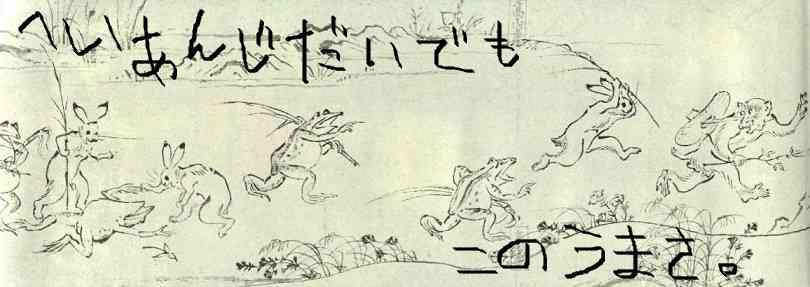 へいあんじだいでも
このうまさ。